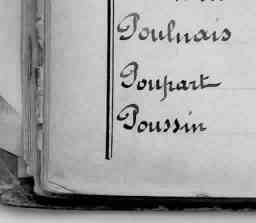 Poulnais
Poupart
Poussin